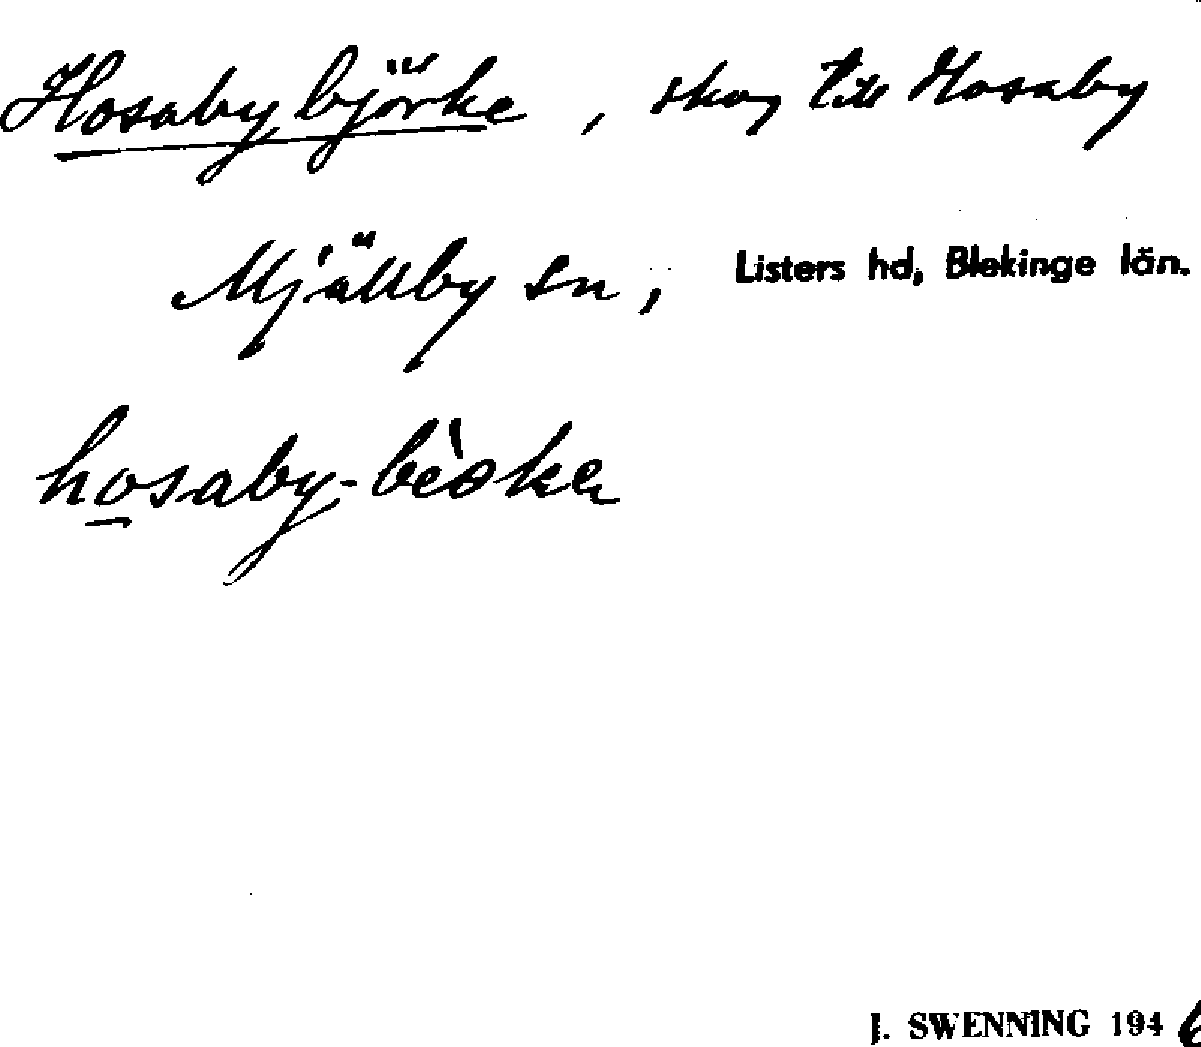 Hosabybjörke, skog till Hosaby
Mjällby sn, Listers hd, Blekinge län.
hosaby-
J. SWENNING 1946